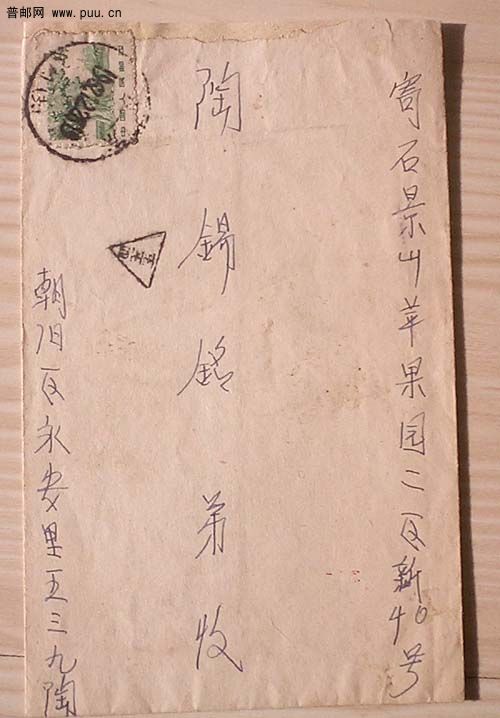 普邮网 www.puu.cn
寄石景山苹果园二区新40号
陶錫銘弟收
朝阳区永安里五三九陶